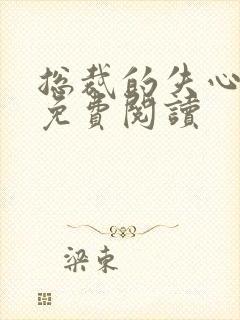 总裁的失心
免費閱讀
梁東